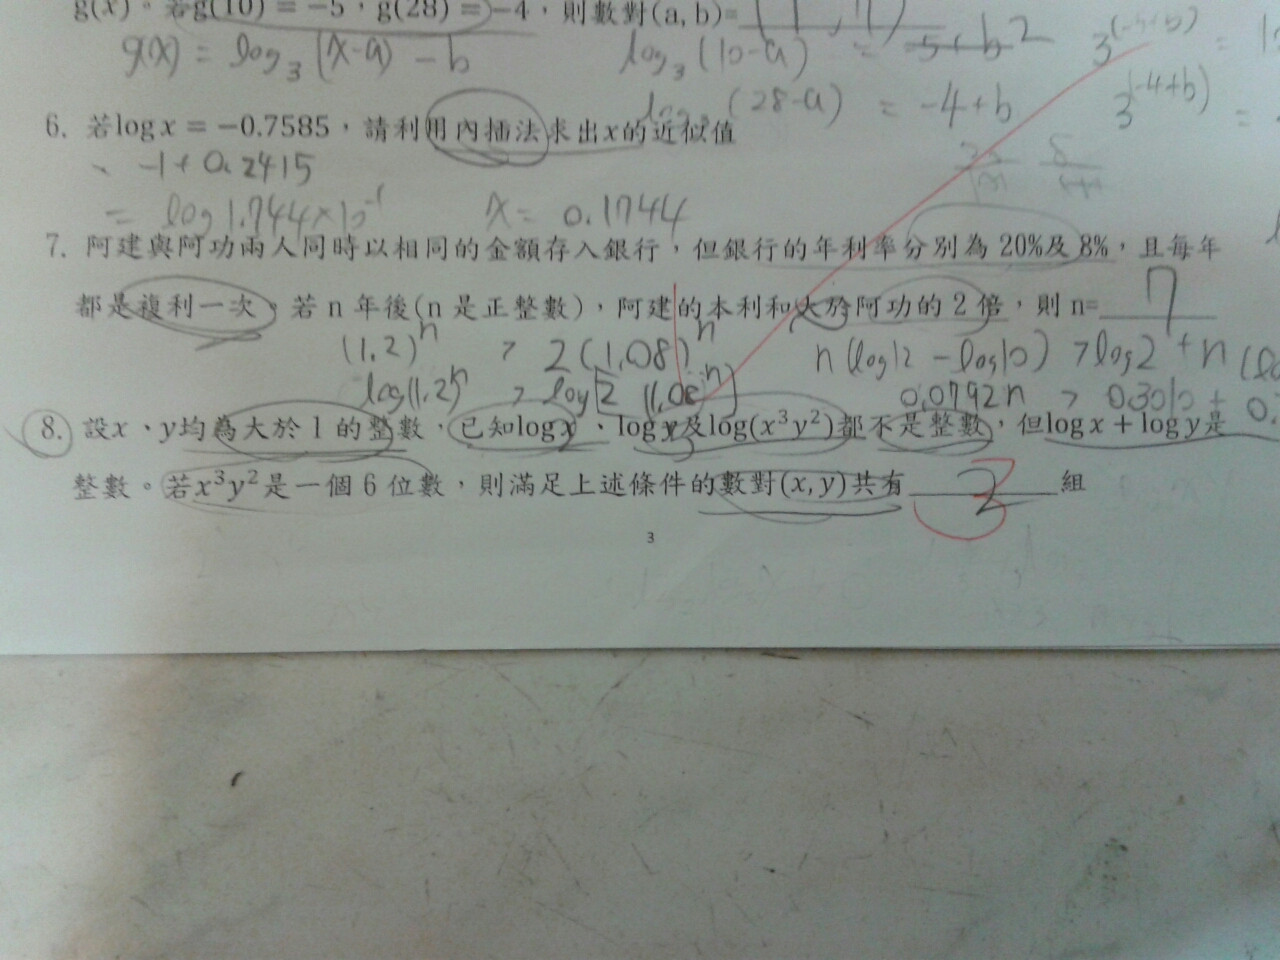 g(x)。若g(10) = −5，g(28) = −4，則數對(a, b)=
g(x) = log₃(x-a) - b log₃(10-a) = -5+b 2 3^(-5+b) =
(28-a) = -4+b 3^(-4+b) =
6. 若log x = −0.7585，請利用內插法求出x的近似值
-1 + 0.2415
= log 1.744×10⁻¹ x = 0.1744
7. 阿建與阿功兩人同時以相同的金額存入銀行，但銀行的年利率分別為 20%及 8%，且每年
都是複利一次。若 n 年後(n 是正整數)，阿建的本利和大於阿功的 2 倍，則 n= 7
(1.2)ⁿ > 2(1.08)ⁿ n(log12 - log10) > log2 + n
log(1.2)ⁿ > log[2 (1.08)ⁿ] 0.0792n > 0.3010 + 0.
8. 設x、y均為大於 1 的整數，已知log x、log y及log(x³y²)都不是整數，但log x + log y是
整數。若x³y²是一個 6 位數，則滿足上述條件的數對(x, y)共有 2 組
3